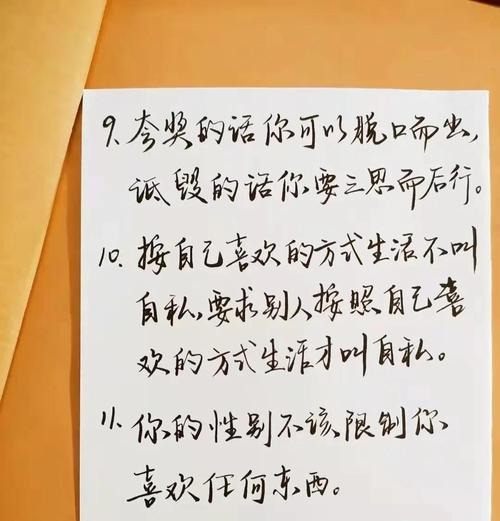 9. 夸奖的话你可以脱口而出,
诋毁的话你要三思而后行。
10. 按自己喜欢的方式生活不叫
自私,要求别人按照自己喜
欢的方式生活才叫自私。
11. 你的性别不该限制你
喜欢任何东西。